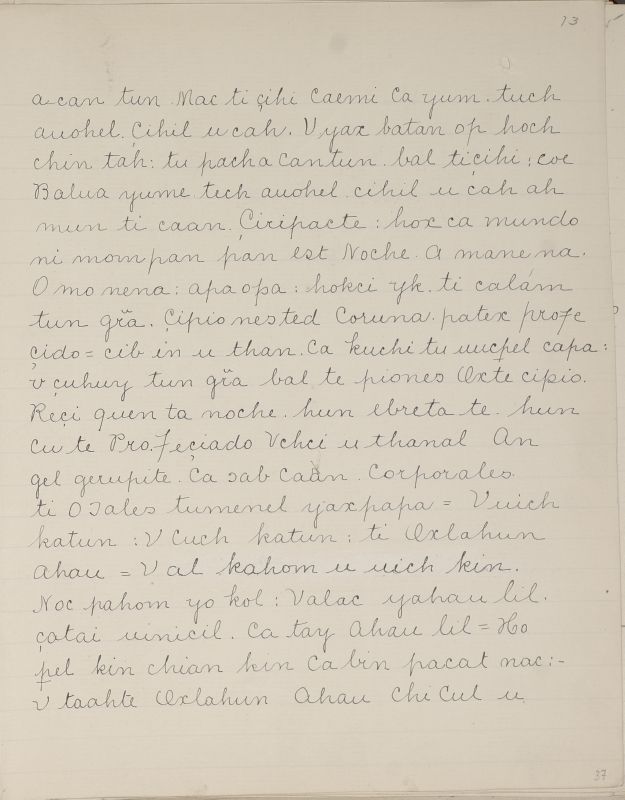 13
a-can tun Mac ti çihi Caemi Ca yum. tuch
auohel. Çihil u cah. V yax batan op hoch
chin tah: tu pacha Cantun. bal tiçihi: coc
Balua yume tech auohel. cihil u cah ah
mun ti caan. Çiripacte: hox ca mundo
ni mompan pan est Noche. A mane na.
O mo nena: apaopa: hokci yk. ti calám
tun gr̃a. Çipio nested Coruna. patex profe
çido = cib in u than. Ca kuchi tu uucpel capa:
v çuhuy tun gr̃a bal te piones Oxte cipio.
Reçi quen ta noche. hun ebreta te. hun
cu te Profeçiado Vchci u thanal An
gel gerupite. Ca sab Caan. Corporales.
ti Otales tumenel yaxpapa = V uich
katun: V Cuch katun: ti Oxlahun
Ahau = V al kahom u uich kin.
Noc pahom yo kol: Valac yahau lil.
çatai uinicil. Ca tay Ahau lil = Ho
pel kin chian kin Ca bin pacat nac:-
v taahte Oxlahun Ahau Chi Cul u
37